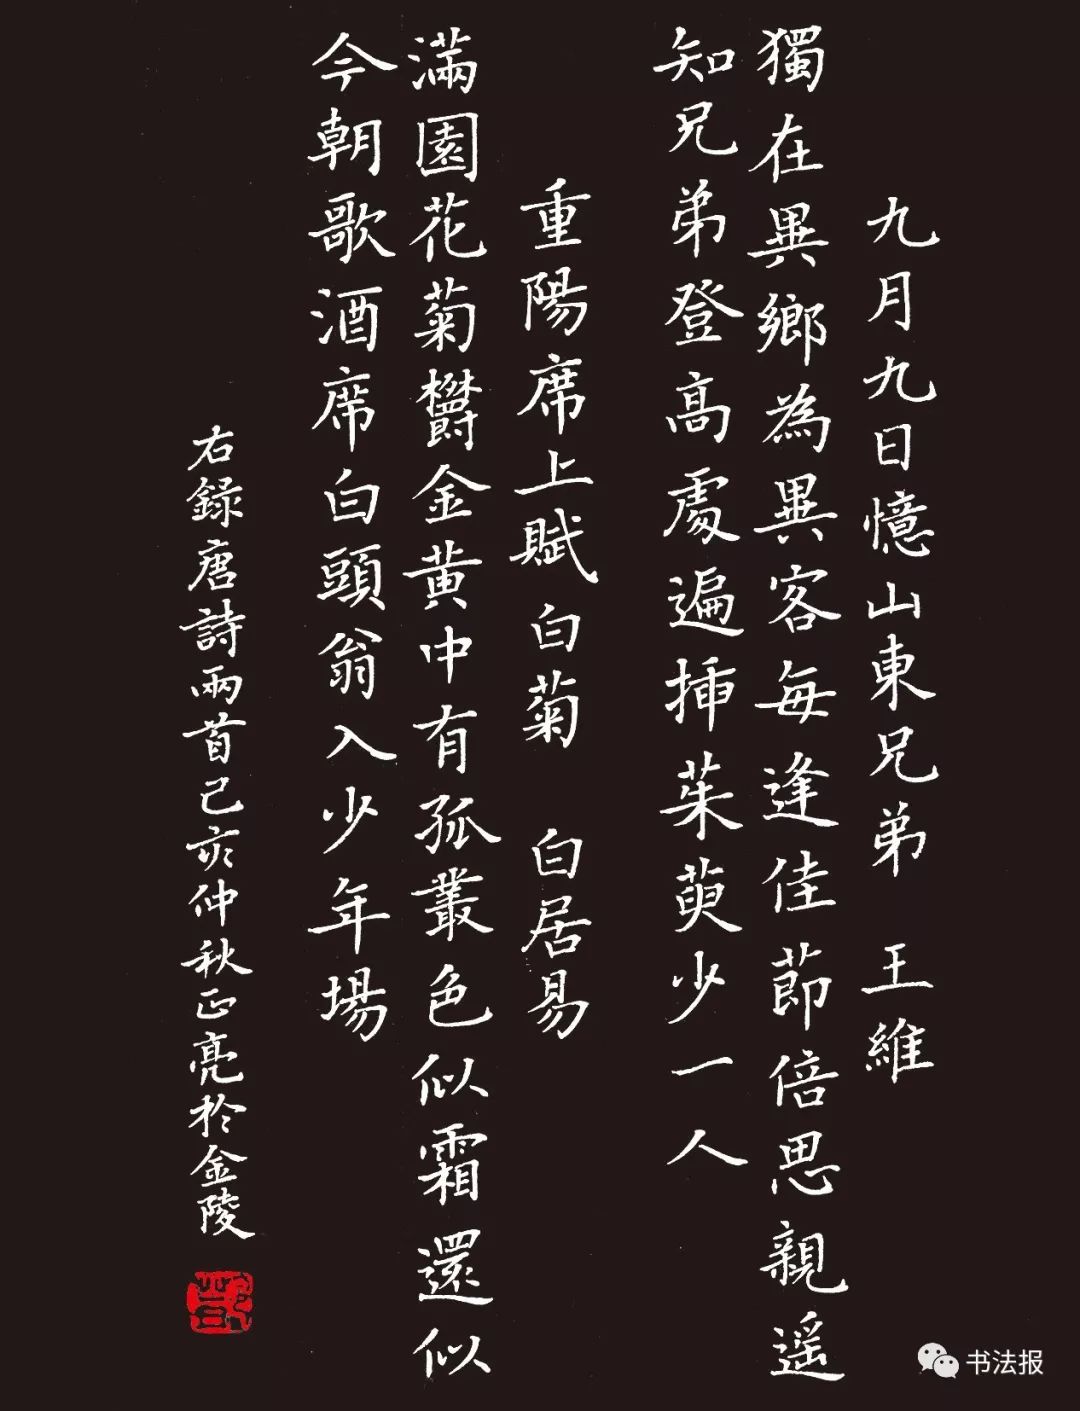 九月九日憶山東兄弟 王維
獨在異鄉為異客每逢佳節倍思親遥
知兄弟登高處遍插茱萸少一人
重陽席上賦白菊 白居易
滿園花菊欝金黄中有孤叢色似霜還似
今朝歌酒席白頭翁入少年場
右録唐詩兩首己亥仲秋正亮於金陵
书法报